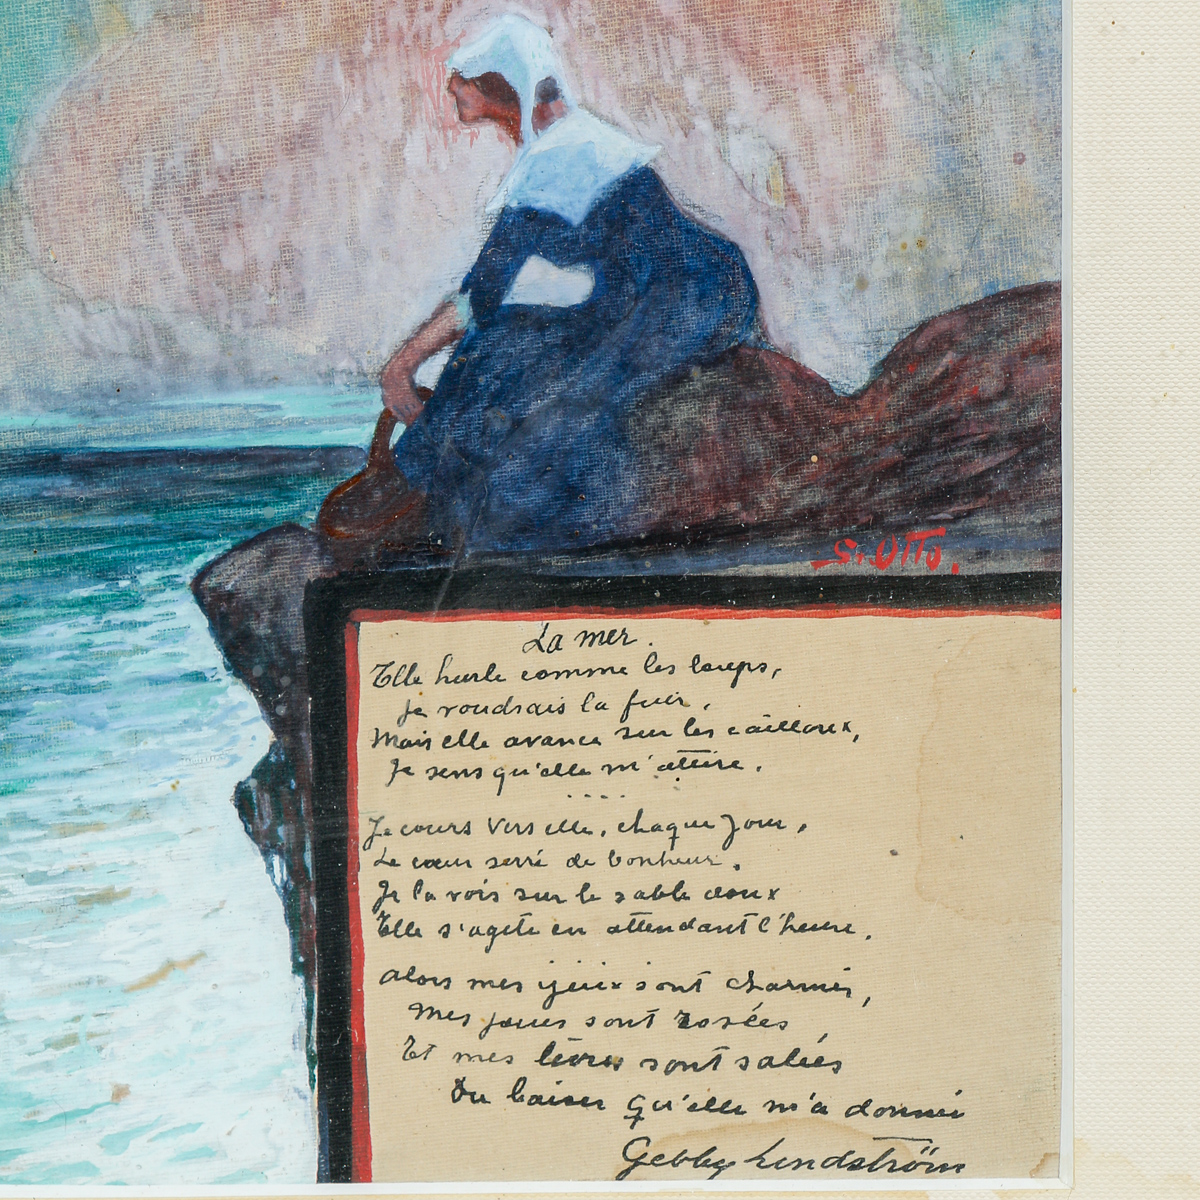 S. Otto.
La mer.
Elle hurle comme les loups,
Je voudrais la fuir,
Mais elle avance sur les cailloux,
Je sens qu'elle m'attire.
....
Je cours vers elle, chaque jour,
Le cœur serré de bonheur.
Je la vois sur le sable doux
Elle s'agite en attendant l'heure,
Alors mes yeux sont charmés,
Mes joues sont rosées,
Et mes lèvres sont salées
Du baiser qu'elle m'a donné
Gebby Lindström